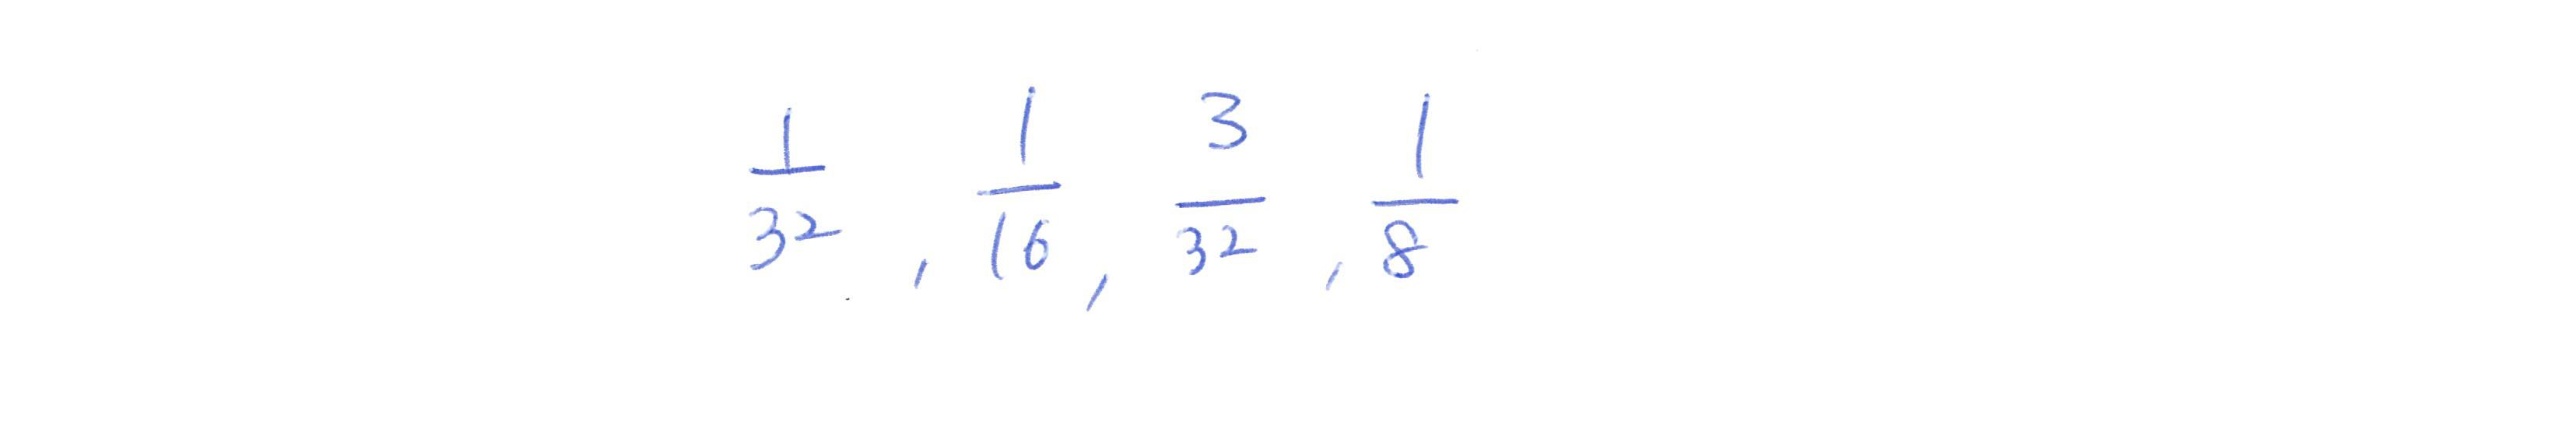 1/32 , 1/16 , 3/32 , 1/8